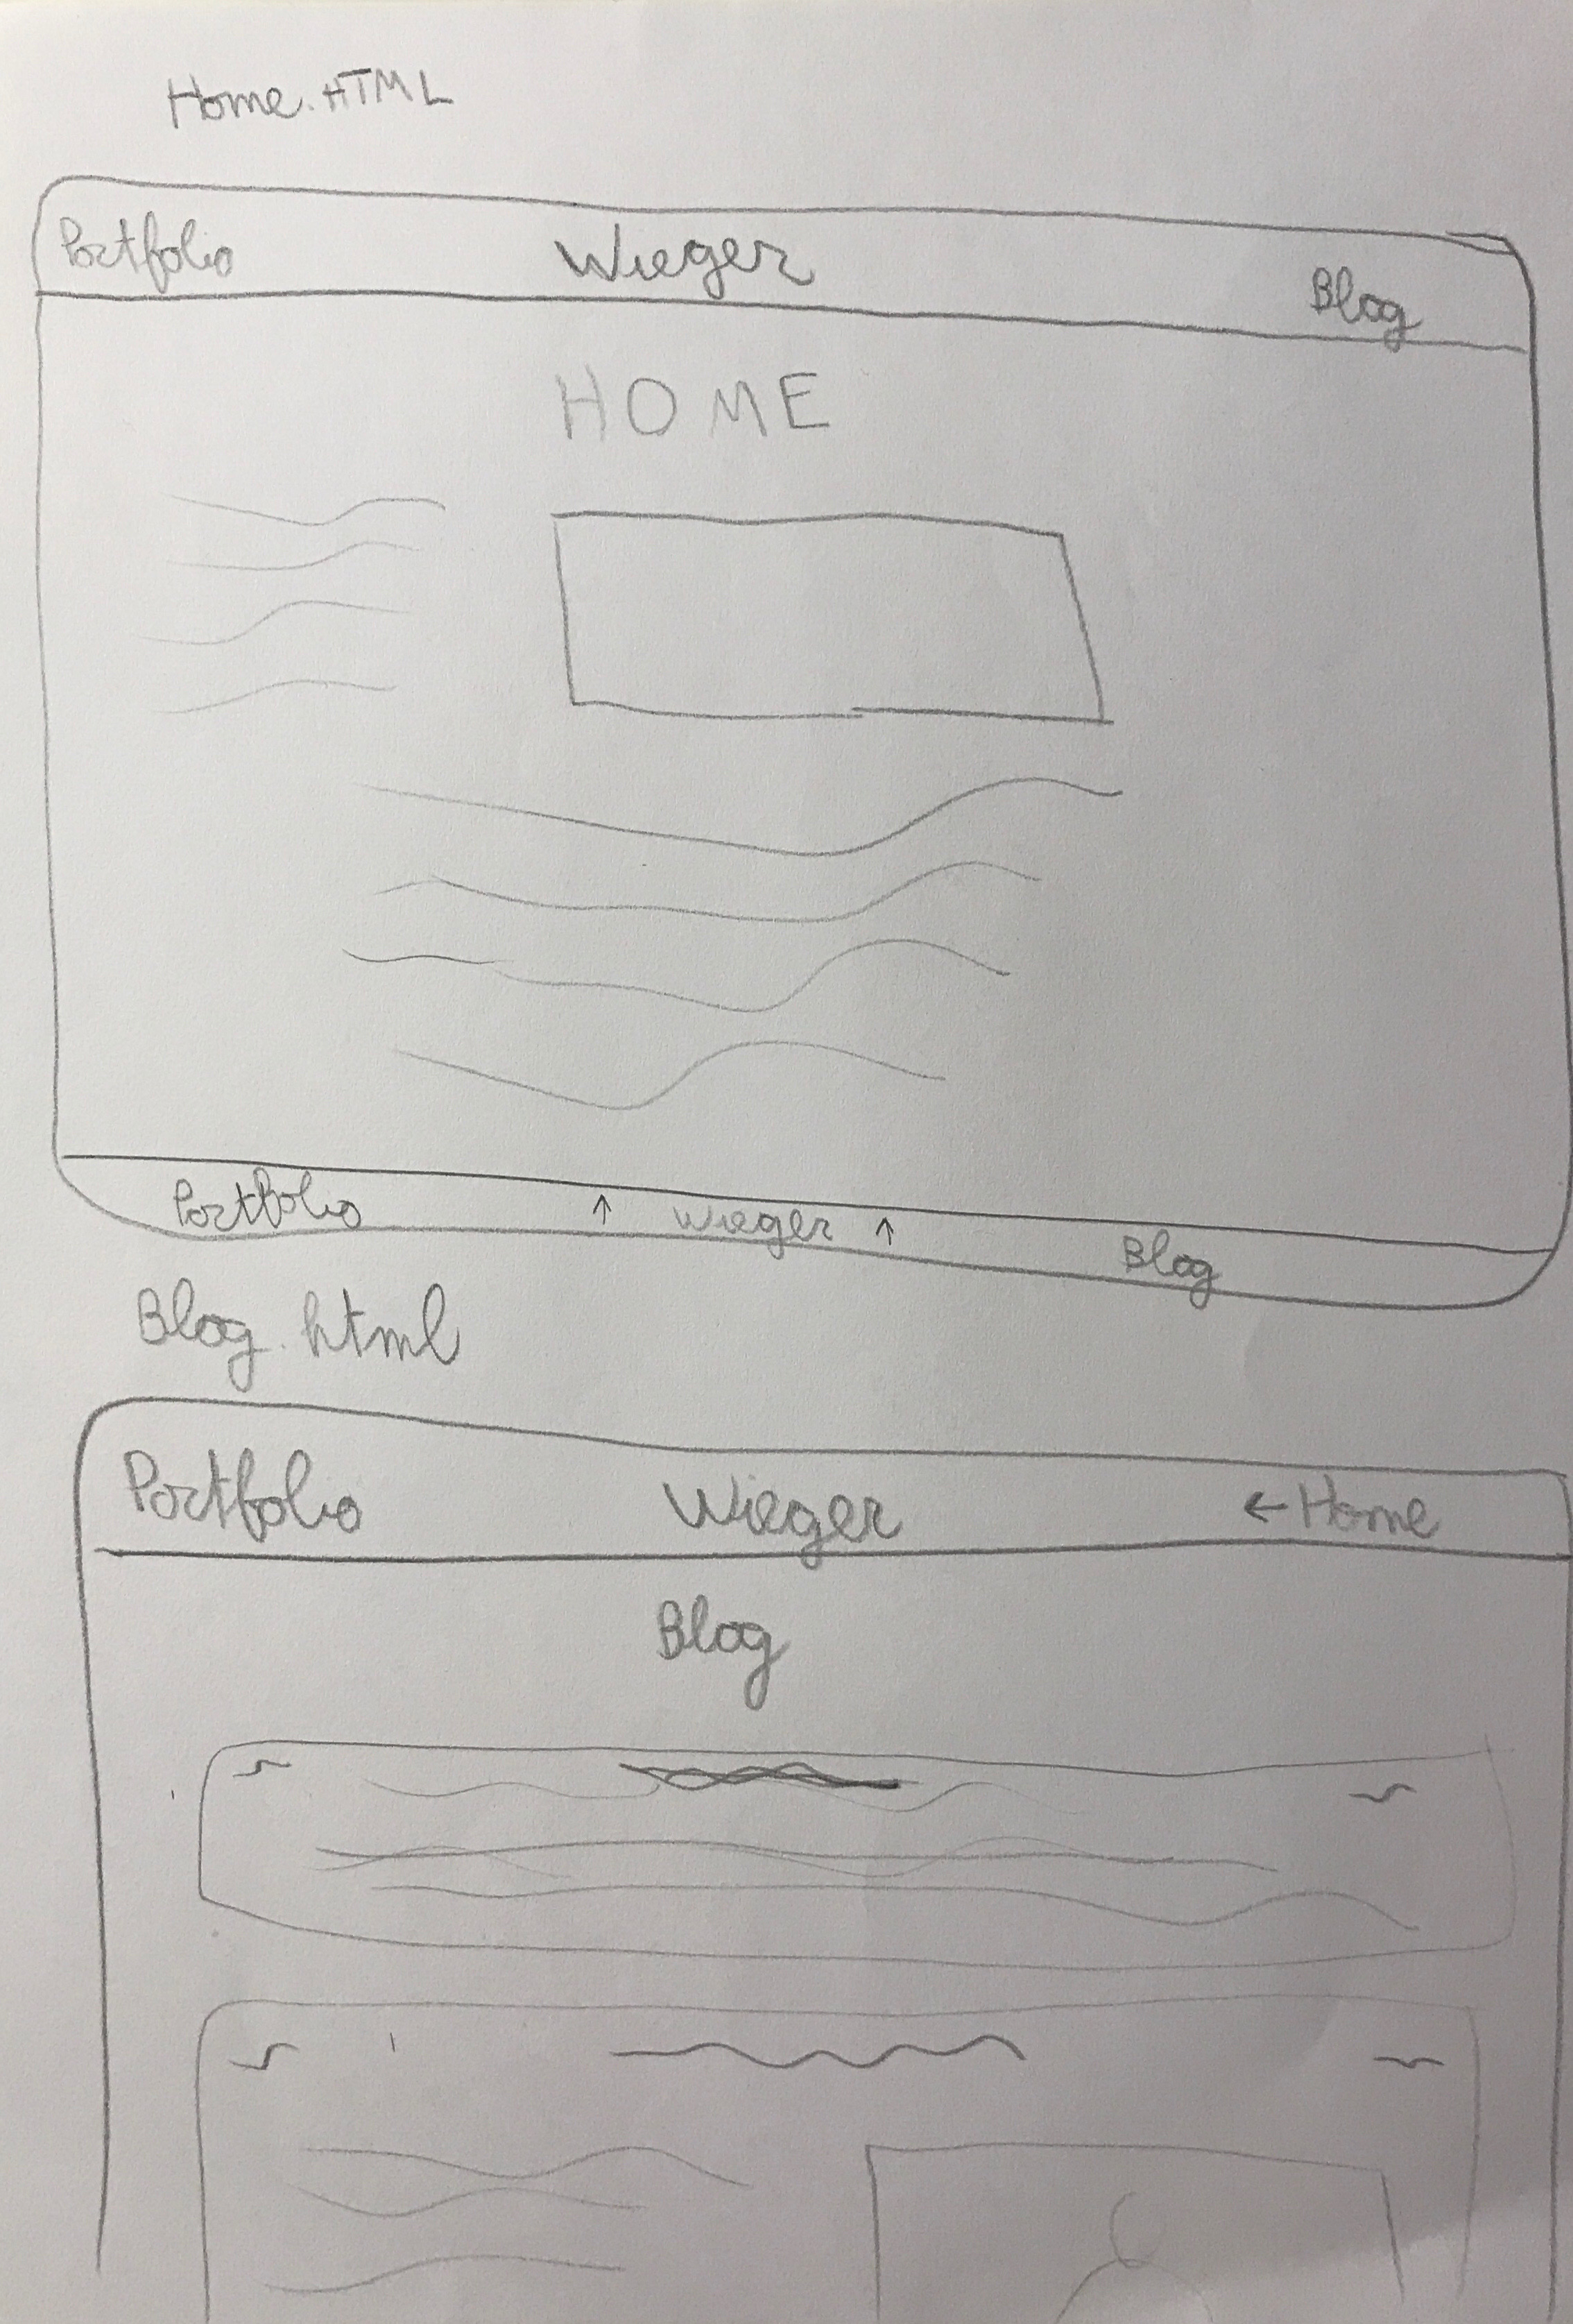 Home.HTML
Portfolio Wieger Blog
HOME
Portfolio ↑ Wieger ↑ Blog
Blog.html
Portfolio Wieger ← Home
Blog